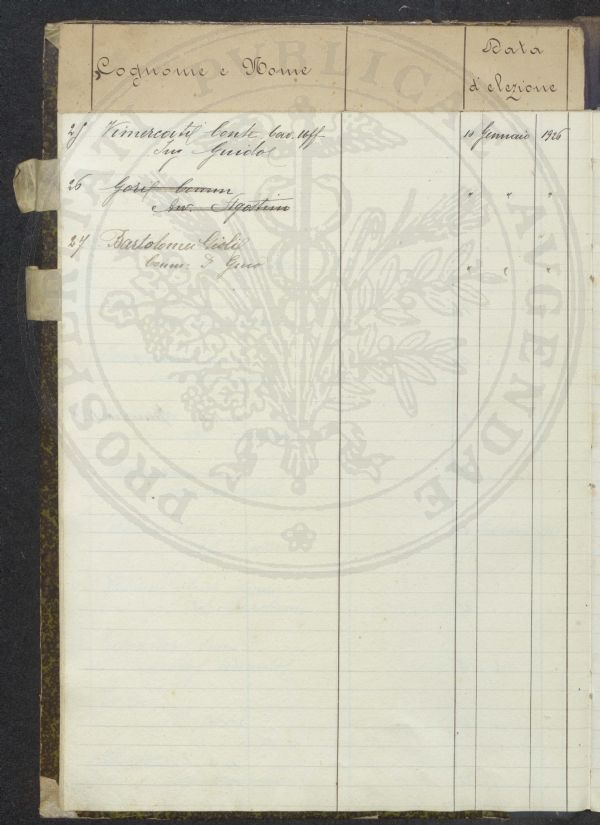 Cognome e Nome
Data
d'elezione
25 Vimercati Conte Cav. Uff. 10 Gennaio 1926
Ing Guido
26 Gori Comm
Avv. Agostino " " "
27 Bartolomei Gioli
Comm. D Gino " " "
PROSPERITATI PUBLICAE AUGENDAE